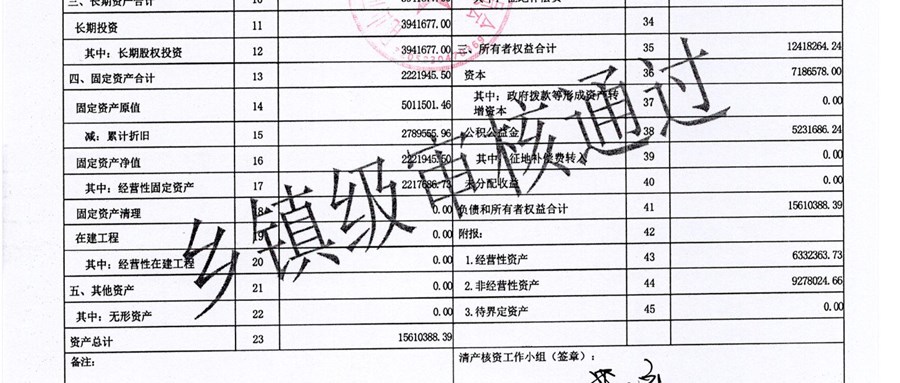 三、长期资产合计 10
长期投资 11 3941677.00 34
其中：长期股权投资 12 3941677.00 三、所有者权益合计 35 12418264.24
四、固定资产合计 13 2221945.50 资本 36 7186578.00
固定资产原值 14 5011501.46 其中：政府拨款等形成资产转增资本 37 0.00
减：累计折旧 15 2789555.96 公积公益金 38 5231686.24
固定资产净值 16 2221945.50 其中：征地补偿费转入 39 0.00
其中：经营性固定资产 17 2217686.73 未分配收益 40 0.00
固定资产清理 18 0.00 负债和所有者权益合计 41 15610388.39
在建工程 19 0.00 附报： 42
其中：经营性在建工程 20 0.00 1.经营性资产 43 6332363.73
五、其他资产 21 0.00 2.非经营性资产 44 9278024.66
其中：无形资产 22 0.00 3.待界定资产 45 0.00
资产总计 23 15610388.39
备注： 清产核资工作小组（签章）：
乡镇级审核通过